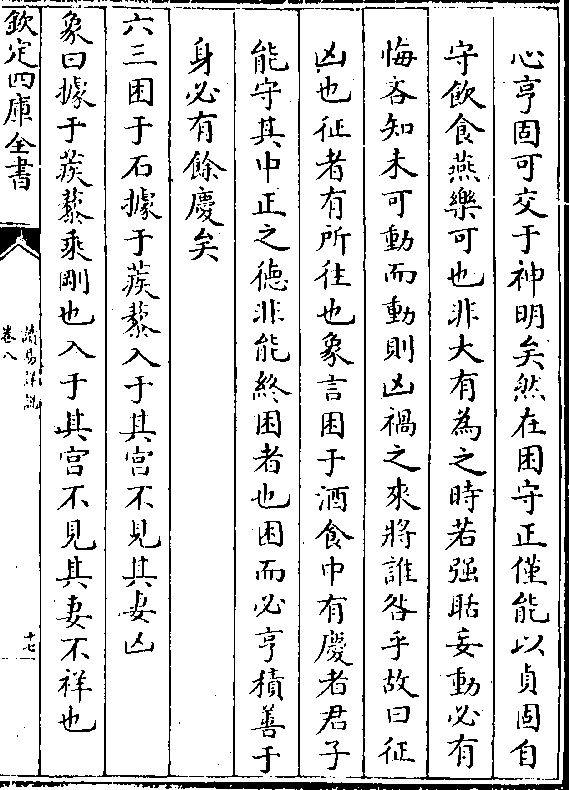 心亨固可交于神明矣然在困守正僅能以貞固自
守飲食燕樂可也非大有為之時若强聒妄動必有
悔吝知未可動而動則凶禍之來將誰咎乎故曰征
凶也征者有所往也象言困于酒食中有慶者君子
能守其中正之德非能終困者也困而必亨積善于
身必有餘慶矣
六三困于石據于蒺藜入于其宫不見其妻凶
象曰據于蒺藜乘剛也入于其宫不見其妻不祥也
欽定四庫全書
讀易詳說
卷八
十七